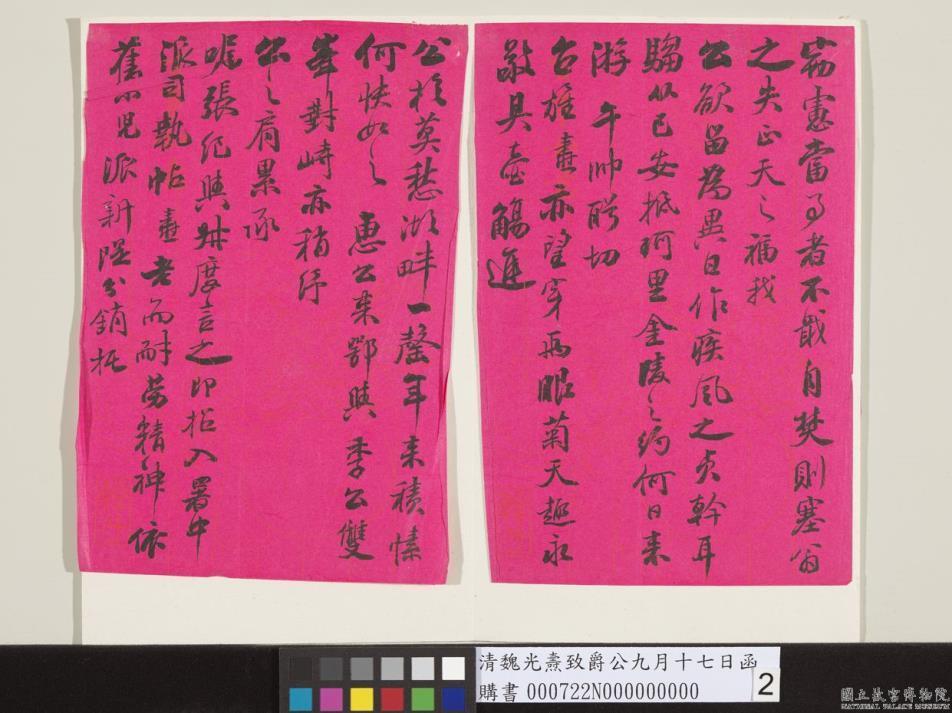 竊憲當局者不戢自焚則塞翁
之失正天之福我
公欲留為異日作疾風之貞幹耳
騶從已安抵珂里金陵之約何日來
游 午帥盼切
台旌晝亦望穿兩眼菊天趣永
敬具壺觴進
公於莫愁湖畔一罄年來積愫
何快如之 惠公來鄂與 季公雙
峯對峙亦稍紓
公之肩累承
囑張紀與叔度言之即招入署中
派司執帖晝 老而耐勞精神依
舊小兒派新隄分銷托
清魏光燾致爵公九月十七日函
購書 000722N000000000
2
國立故宮博物院
NATIONAL PALACE MUSEUM